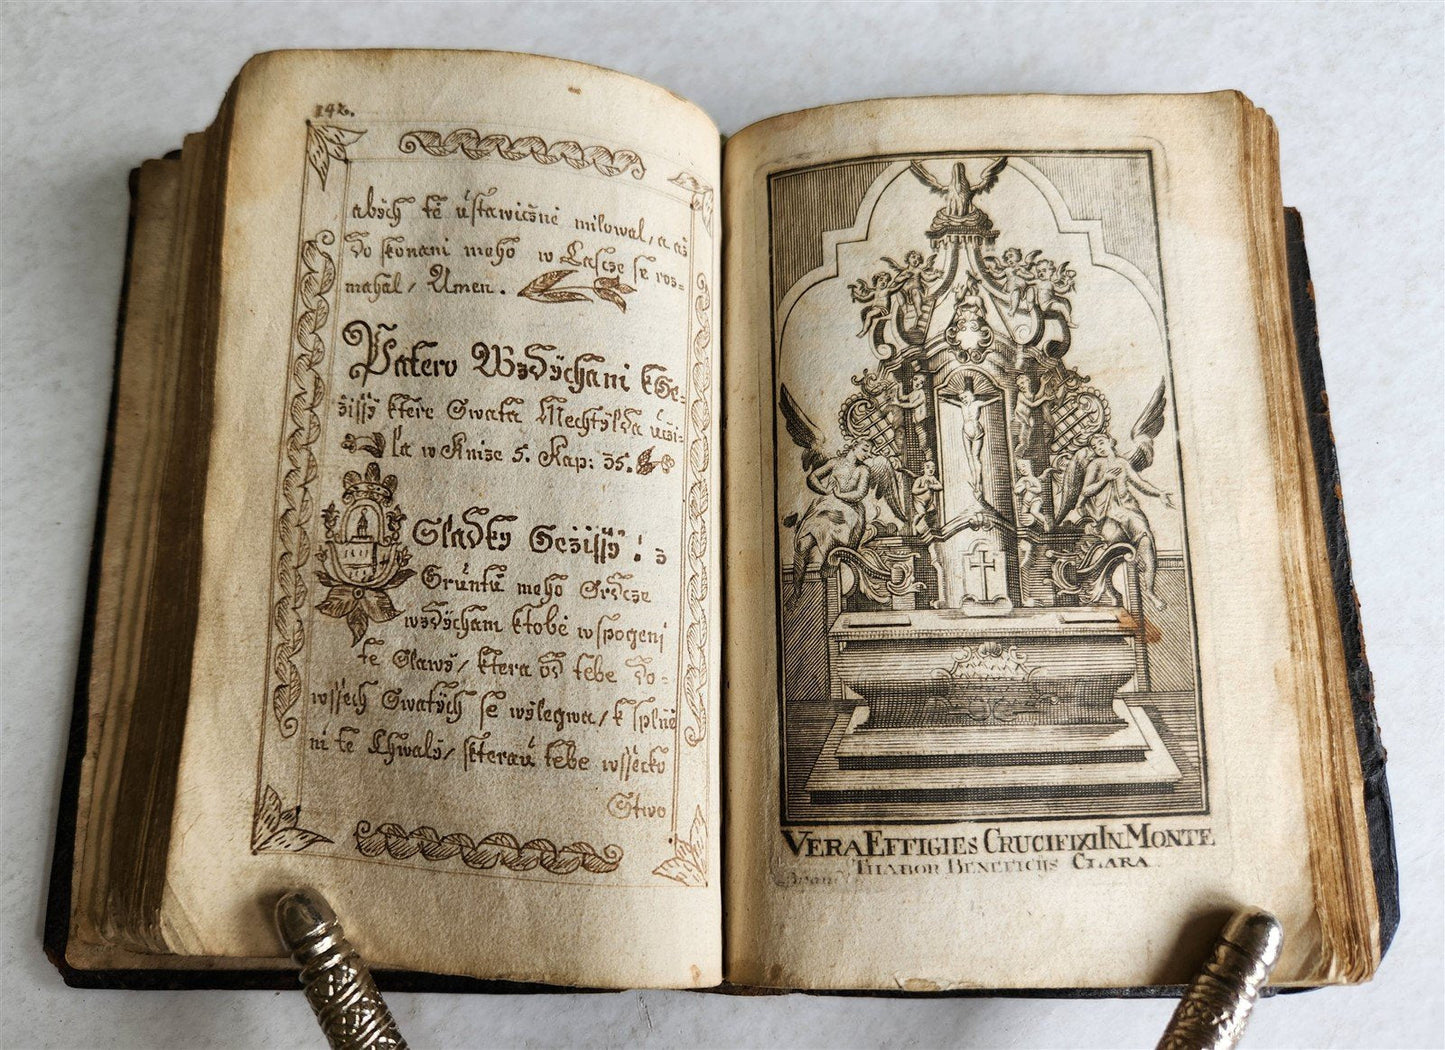 142.
abych tě ustawičně milowal/a až
do skonani meho w Lasce se roz=
mahal/ Amen.
Patero Wzdychani k Ge=
žissy ktere Swata Mechtylda uži=
la w Knize 5. Kap: 35.
Sladky Gežissy! z
Gruntu meho Srdcze
wzdycham ktobě wspogeni
te Slawy/ ktera od tebe do=
wssech Swatych se wylegwa/ k splně
ni te Chwaly/ kterau tebe wssecko
Stwo
VERA EFFIGIES CRUCIFIXI IN MONTE
THABOR BENEFICIJS CLARA